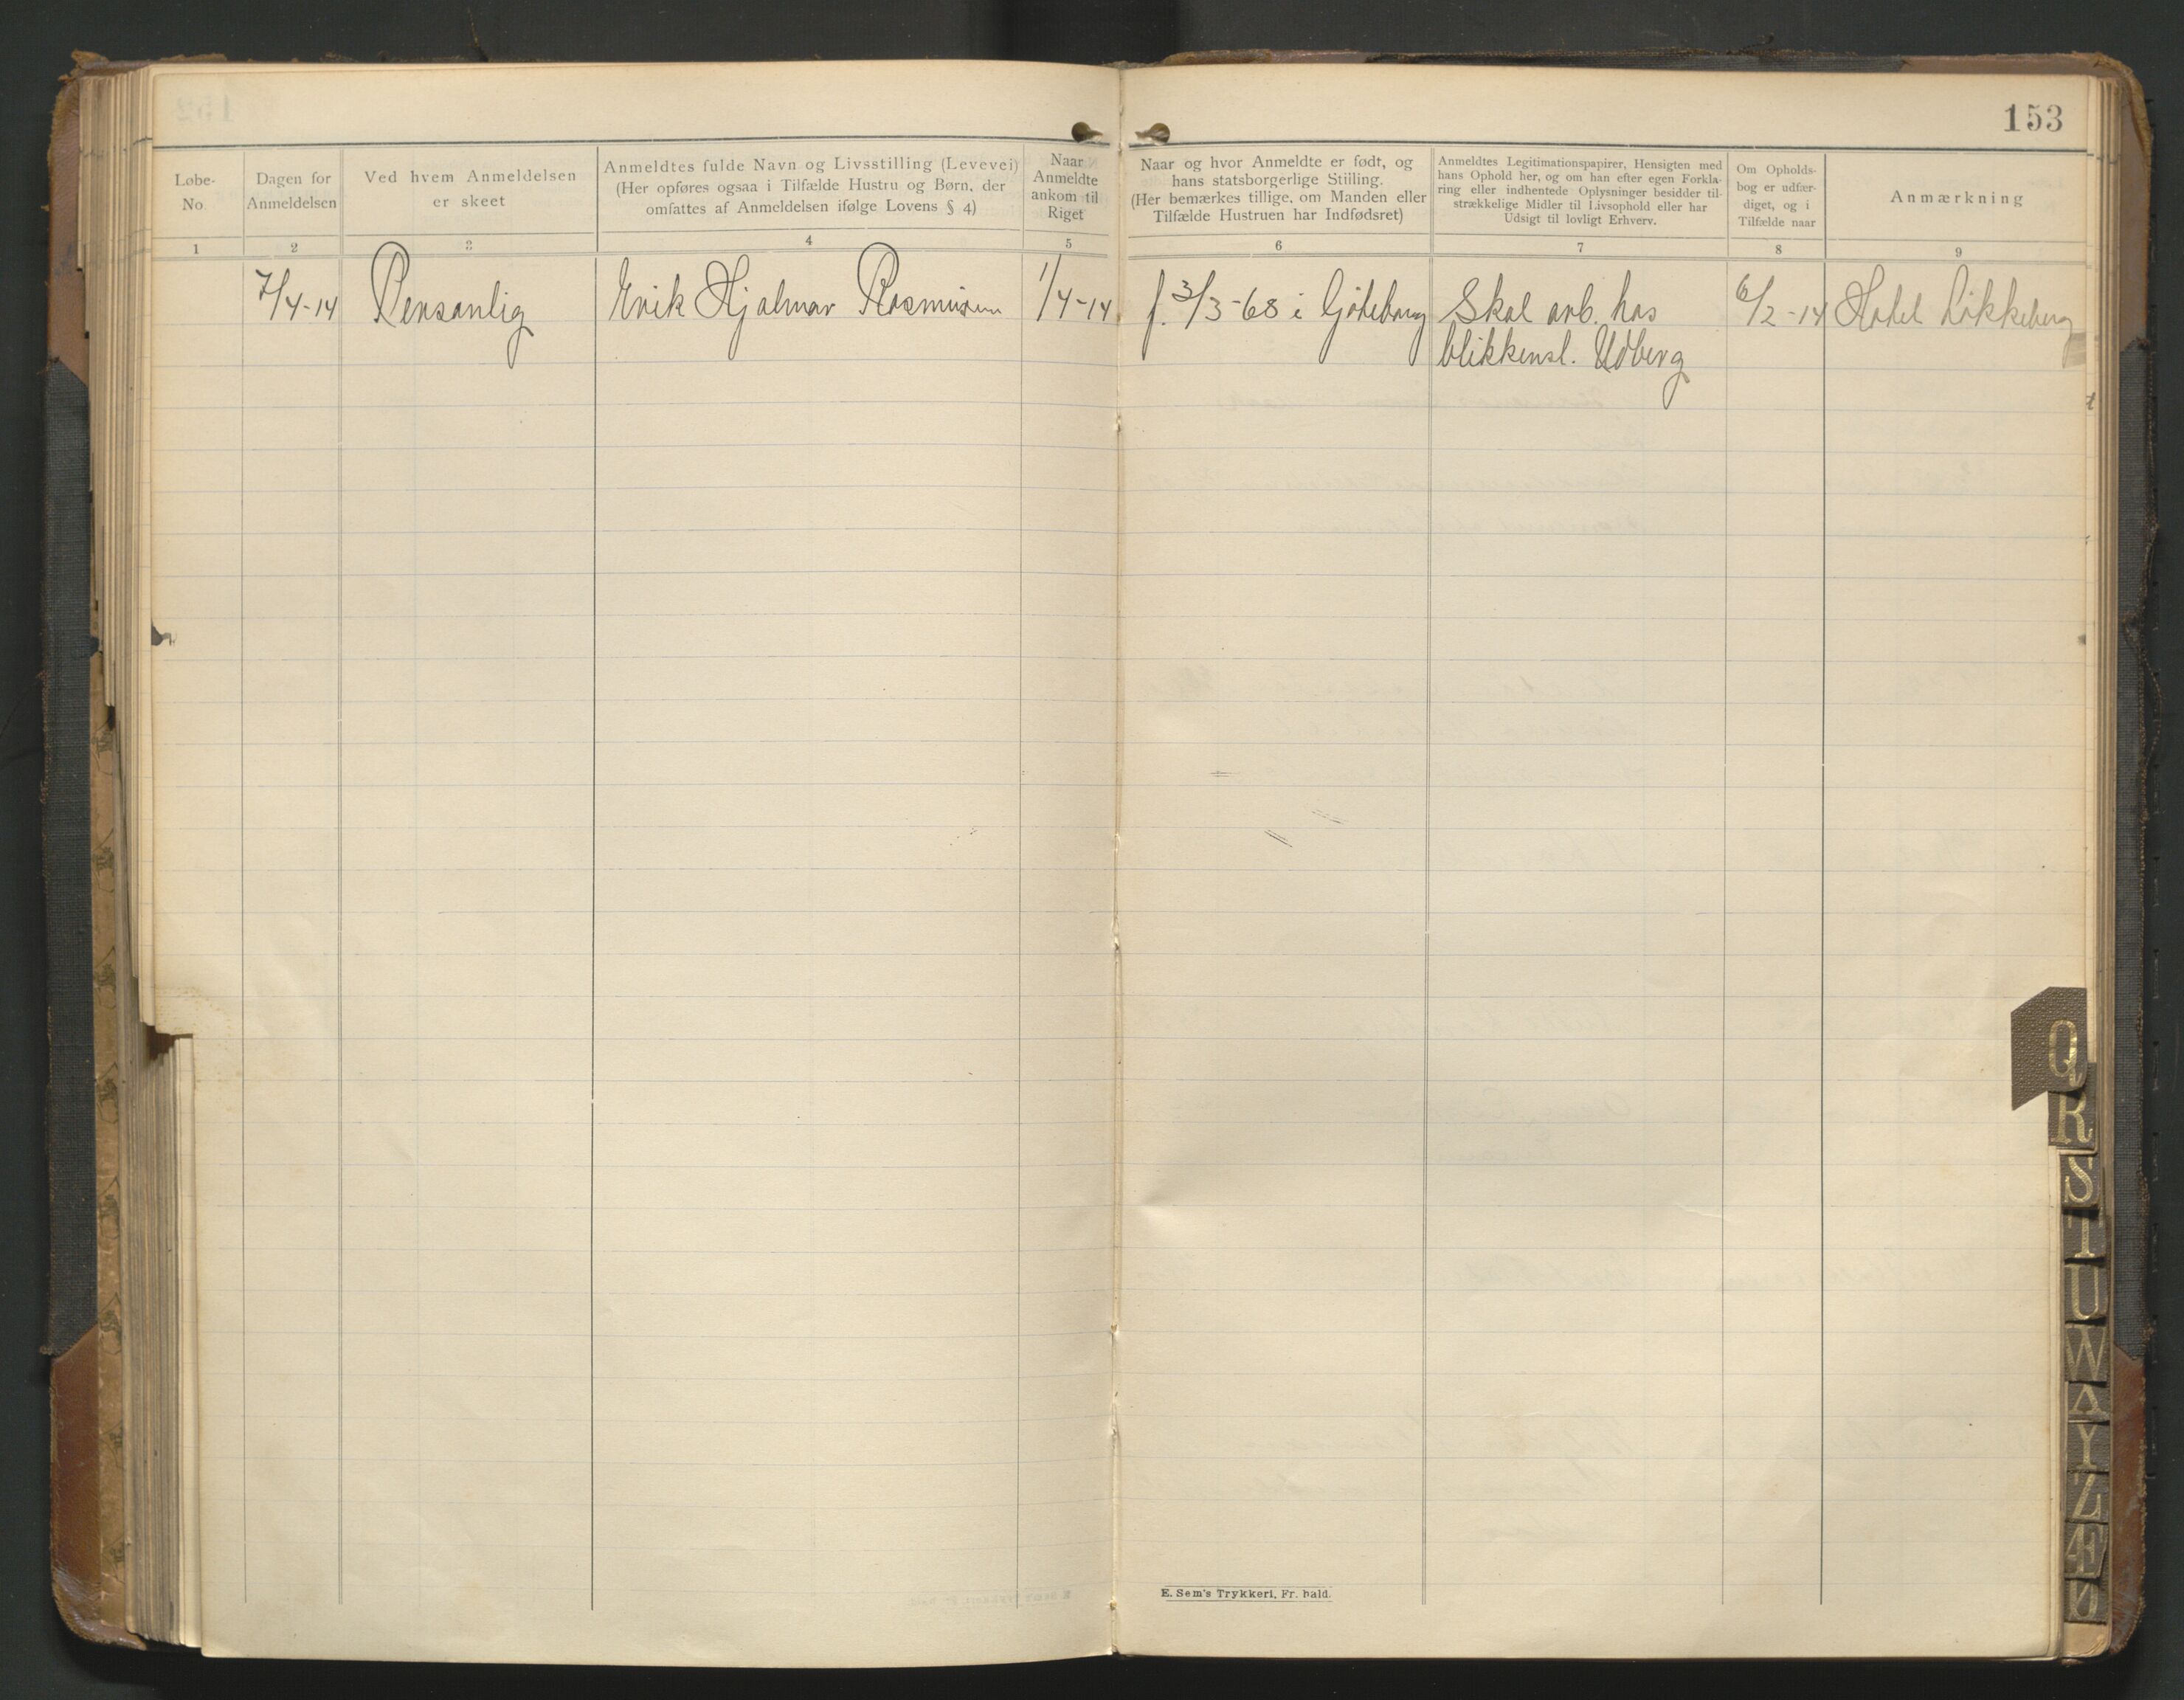 153
Løbe-
No.
Dagen for
Anmeldelsen
Ved hvem Anmeldelsen
er skeet
Anmeldtes fulde Navn og Livsstilling (Levevei)
(Her opføres ogsaa i Tilfælde Hustru og Børn, der
omfattes af Anmeldelsen ifølge Lovens § 4)
Naar
Anmeldte
ankom til
Riget
Naar og hvor Anmeldte er født, og
hans statsborgerlige Stiiling.
(Her bemærkes tillige, om Manden eller
Tilfælde Hustruen har Indfødsret)
Anmeldtes Legitimationspapirer, Hensigten med
hans Ophold her, og om han efter egen Forkla-
ring eller indhentede Oplysninger besidder til-
strækkelige Midler til Livsophold eller har
Udsigt til lovligt Erhverv.
Om Opholds-
bog er udfær-
diget, og i
Tilfælde naar
Anmærkning
1 2 3 4 5 6 7 8 9
7/4-14 Personlig Erik Hjalmar Rasmussen 1/4-14 f. 3/3-68 i Göteborg Skal arb. hos 6/2-14 Hotel Løkkeberg
blikkensl. Udberg
Q
R
S
T
U
W
Y
Z
Æ
Ø
E. Sem's Trykkeri, Fr. hald.